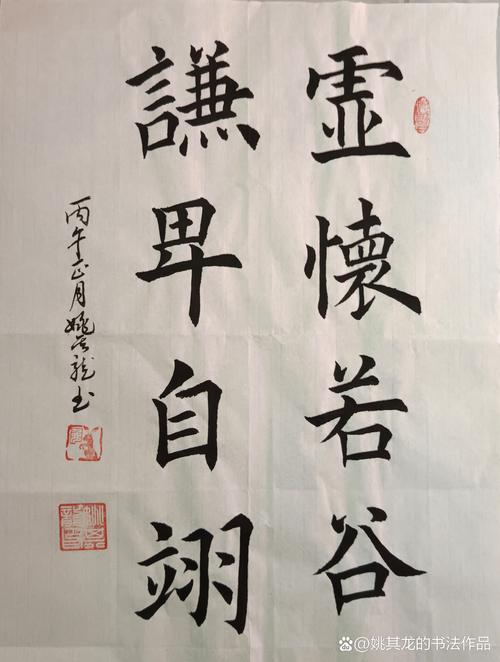 虛懷若谷
謙卑自翊
丙午正月姚其龍书
姚其龙的书法作品